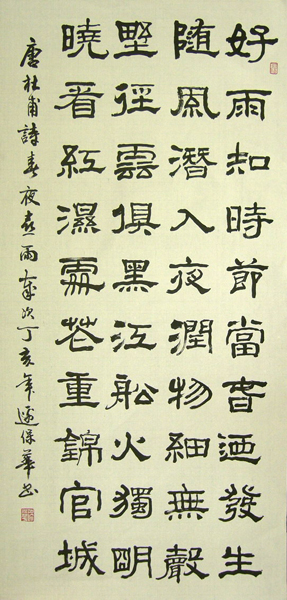 好雨知時節當春迺發生
随風潛入夜潤物細無聲
野徑雲俱黑江船火獨明
曉看紅濕處花重錦官城
唐杜甫詩春夜喜雨歲次丁亥年保華書